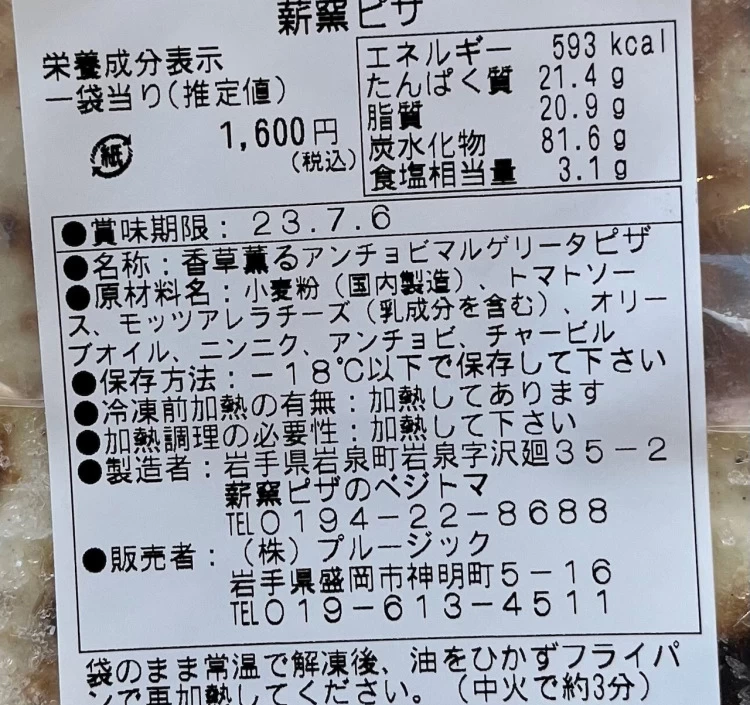 薪窯ピザ
栄養成分表示
一袋当り(推定値)
1,600円
(税込)
紙
エネルギー 593 kcal
たんぱく質 21.4 g
脂質 20.9 g
炭水化物 81.6 g
食塩相当量 3.1 g
●賞味期限：23.7.6
●名称：香草薫るアンチョビマルゲリータピザ
●原材料名：小麦粉（国内製造）、トマトソー
ス、モッツアレラチーズ（乳成分を含む）、オリー
ブオイル、ニンニク、アンチョビ、チャービル
●保存方法：－18℃以下で保存して下さい
●冷凍前加熱の有無：加熱してあります
●加熱調理の必要性：加熱して下さい
●製造者：岩手県岩泉町岩泉字沢廻35－2
薪窯ピザのベジトマ
TEL0194－22－8688
●販売者：（株）プルージック
岩手県盛岡市神明町5－16
TEL019－613－4511
袋のまま常温で解凍後、油をひかずフライパ
ンで再加熱してください。（中火で約3分）